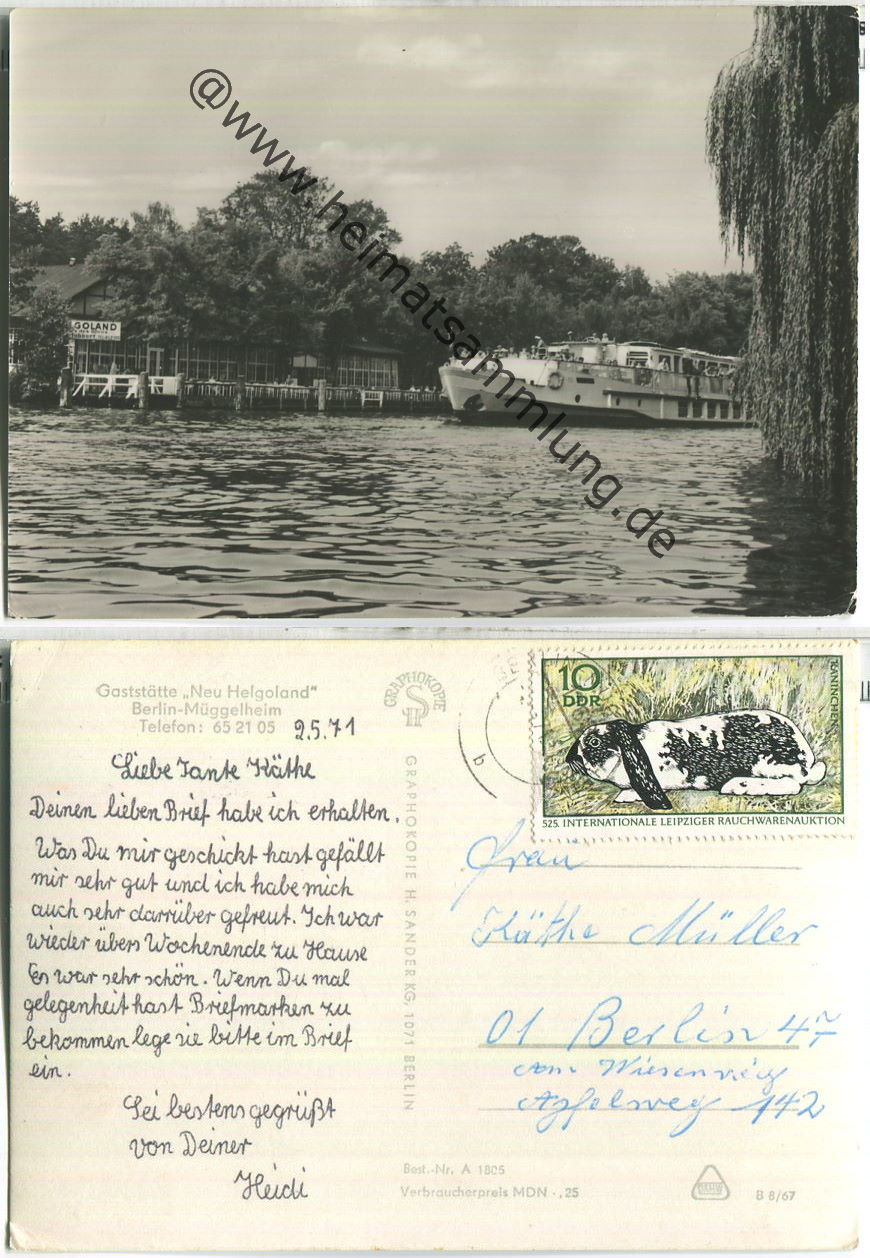 @www.heimatsammlung.de
GOLAND
Gaststätte „Neu Helgoland"
Berlin-Müggelheim
Telefon: 65 21 05
2.5.71
Liebe Tante Käthe
Deinen lieben Brief habe ich erhalten.
Was Du mir geschickt hast gefällt
mir sehr gut und ich habe mich
auch sehr darrüber gefreut. Ich war
wieder übers Wochenende zu Hause
Es war sehr schön. Wenn Du mal
gelegenheit hast Briefmarken zu
bekommen lege sie bitte im Brief
ein.
Sei bestens gegrüßt
von Deiner
Heidi
GRAPHOKOPIE
GRAPHOKOPIE H. SANDER KG, 1071 BERLIN
b
10
DDR
KANINCHEN
525. INTERNATIONALE LEIPZIGER RAUCHWARENAUKTION
Frau
Käthe Müller
01 Berlin 47
Am Wiesenweg
Apfelweg 142
Best.-Nr. A 1805
Verbraucherpreis MDN -,25
B 8/67